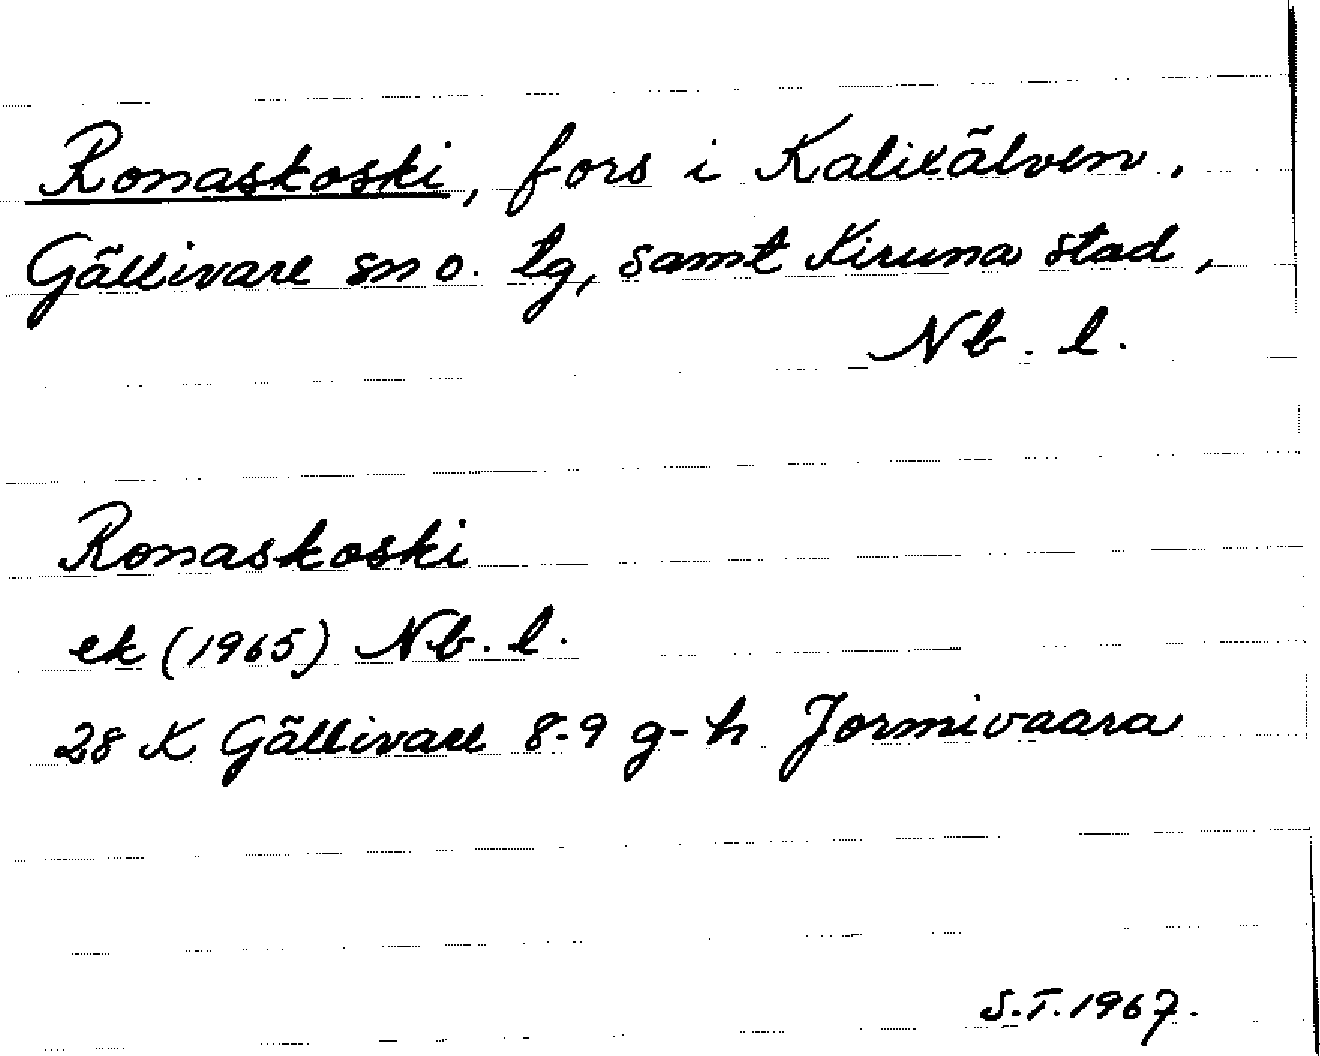 Ronaskoski, fors i Kalixälven,
Gällivare sn o. tg, samt Kiruna stad,
Nb. l.
Ronaskoski
ek (1965) Nb. l.
28 K Gällivare 8-9 g-h Jormivaara
S.T. 1967.